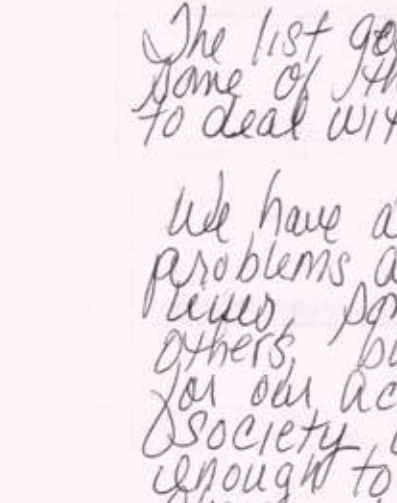 The list go
some of th
to deal wit
We have a
problems a
lives, som
others, bu
for our ac
society,
enough to